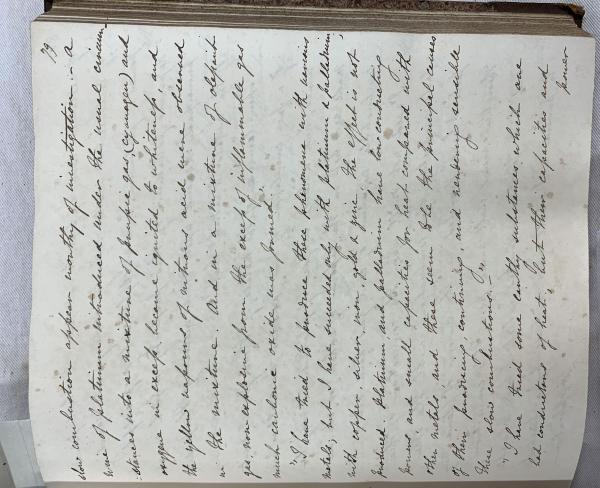 79
slow combustion appear worthy of investigation. a
wire of platinum introduced under the usual circum-
stances into a mixture of prussic gas (cyanogen) and
oxygene in excess became ignited to whiteness, and
the yellow vapours of nitrous acid were observed
in the mixture. And in a mixture of olefiant
gas non explosive from the excess of inflammable gas
much carbonic oxide was formed.
"I have tried to produce these phenomena with various
metals; but I have succeeded only with platinum & palladium;
with copper, silver, iron, gold & zinc the effect is not
produced. Platinum and palladium have low conducting
powers and small capacities for heat compared with
other metals, and these seem to be the principal causes
of their producing, continuing and rendering sensible
these slow combustions."
"I have tried some earthy substances which are
bad conductors of heat; but their capacities and
power